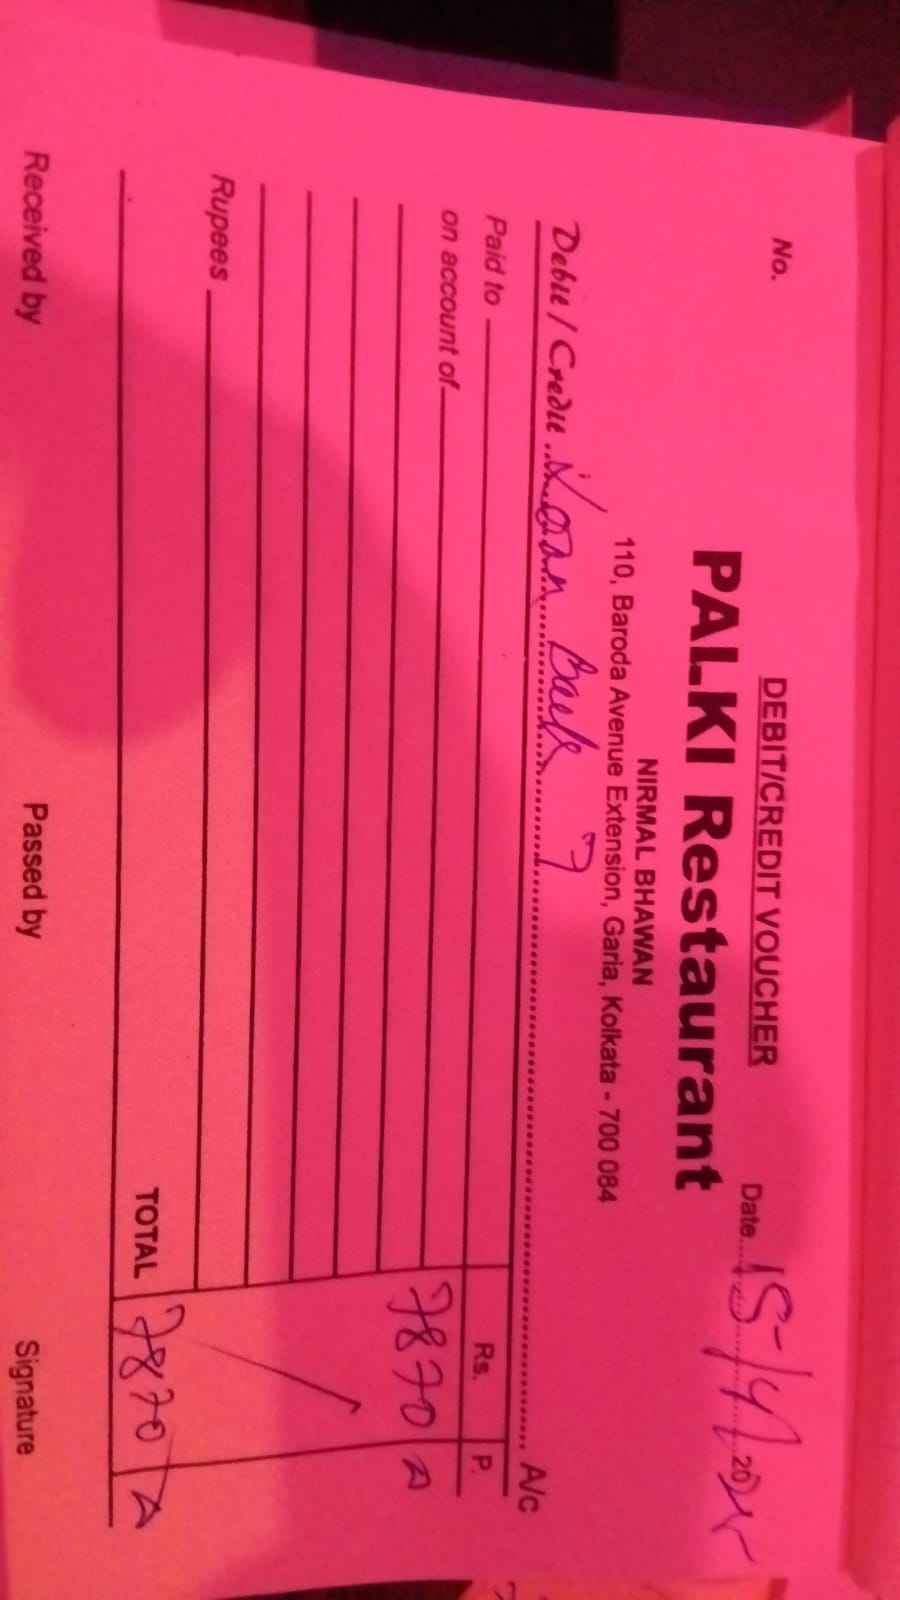 DEBIT/CREDIT VOUCHER
No. Date 15/4/2025
PALKI Restaurant
NIRMAL BHAWAN
110, Baroda Avenue Extension, Garia, Kolkata - 700 084
Debit / Credit Loan A/c
Paid to Rs. P.
on account of 7870
Rupees
TOTAL 7870
Received by Passed by Signature